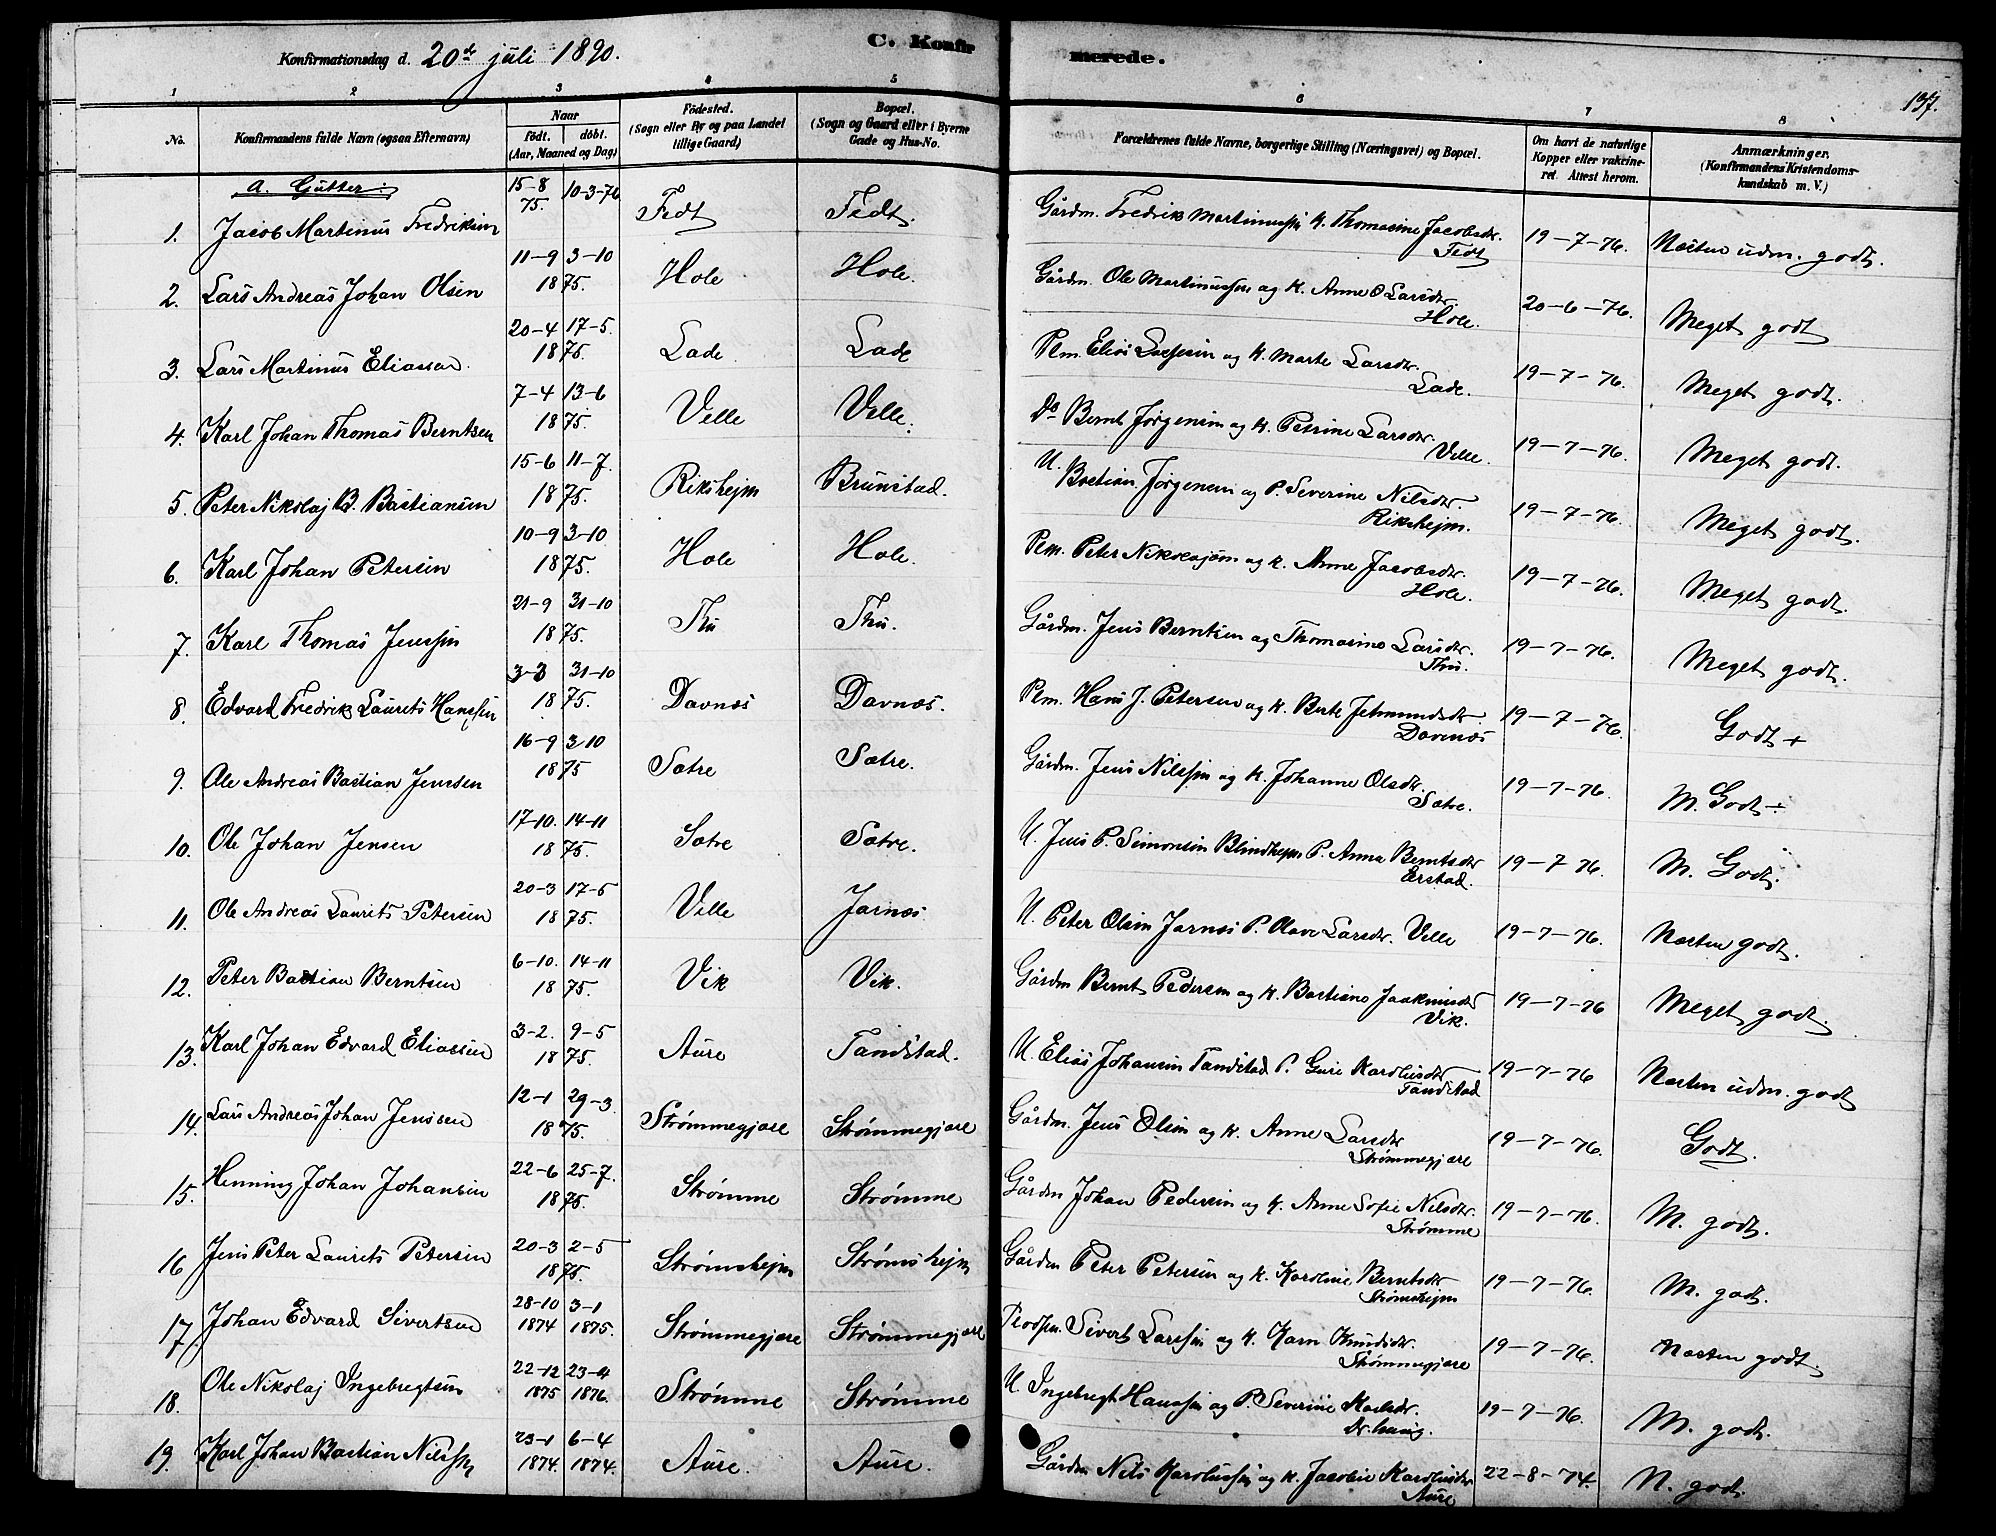 Konfirmationsdag d. 20de juli 1890.
C. Konfir merede.
137.
1 2 3 4 5 6 7 8
No. Konfirmandens fulde Navn (ogsaa Efternavn) Naar födt. döbt. (Aar, Maaned og Dag) Födested. (Sogn eller By og paa Landet tillige Gaard) Bopæl. (Sogn og Gaard eller i Byerne Gade og Hus-No. Forældrenes fulde Navne, borgerlige Stilling (Næringsvei) og Bopæl. Om havt de naturlige Kopper eller vakcineret. Attest herom. Anmærkninger. (Konfirmandens Kristendomskundskab m. V.)
a. Gutter:
1. Jacob Martinus Fredriksen 15-8 75. 10-3-76 Fedt Fedt. Gårdm. Fredrik Martinussen K. Thomasine Jacobsdr. Fedt 19-7-76. Næsten udm. godt.
2. Lars Andreas Johan Olsen 11-9 3-10 1875. Hole Hole. Gårdm. Ole Martinussen og K. Anne O Larsdr. Hole. 20-6-76. Meget godt
3. Lars Martinus Eliassen 20-4 17-5. 1875. Lade Lade Plm. Elias Lassesen og K. Marte Larsdr. Lade. 19-7-76. Meget godt.
4. Karl Johan Thomas Berntsen 7-4 13-6 1875. Velle Velle. Do Bernt Jørgensen og K. Petrine Larsdr. Velle. 19-7-76. Meget godt.
5. Peter Nikolaj B. Bastiansen 15-6 11-7. 1875. Rikshejm Brunstad. U. Bastian Jørgensen og P. Severine Nilsdr. Rikshejm. 19-7-76. Meget godt.
6. Karl Johan Petersen 10-9 3-10 1875. Hole Hole. Plm. Peter Nikolajsen og K. Anne Jacobsdr. Hole. 19-7-76. Meget godt.
7. Karl Thomas Jenssen 21-9 31-10 1875. Thu Thu. Gårdm. Jens Berntsen og Thomasine Larsdr. Thu. 19-7-76. Meget godt.
8. Edvard Fredrik Laurits Hanssen 3-3 31-10 1875. Davnæs Davnæs. Plm. Hans J. Petersen og K. Berte Jetmundsdr. Davnæs 19-7-76. Godt +
9. Ole Andreas Bastian Jenssen 16-9 3-10 1875 Sætre Sætre. Gårdm. Jens Nilssen og K. Johanne Olsdr. Sætre. 19-7-76. M. Godt ÷
10. Ole Johan Jensen 17-10. 14-11 1875. Sætre Sætre. U Jens P. Simonsen Blindhejm P. Anna Berntsdr Erstad. 19-7 76. M. Godt.
11. Ole Andreas Laurits Petersen 20-3 17-5 1875. Velle Jarnæs U. Peter Olsen Jarnæs P. Olave Larsdr. Velle 19-7-76. Næsten godt.
12. Peter Bastian Berntsen 6-10. 14-11 1875. Vik Vik. Gårdm Bernt Pedersen og K. Bastiane Vik. 19-7-76 Meget godt.
13. Karl Johan Edvard Eliassen 3-2. 9-5 1875. Aure Tandstad. U. Elias Johansen Tandstad P. Guri Karolusdr Tandstad 19-7-76 Næsten udm. godt
14. Lars Andreas Johan Jenssen 12-1 29-3. 1875. Strømmegjære Strømmegjære Gårdm. Jens Olsen og K. Anne Larsdr Strømmegjære 19-7-76. Godt.
15. Henning Johan Johansen 22-6 25-7. 1875. Strømme Strømme Gårdm Johan Pedersen og K. Anne Sofie Nilsdr. Strømme 19-7-76. M. godt.
16 Jens Peter Laurits Petersen 20-3 2-5 1875. Strømshejm Strømshejm Gårdm Peter Petersen og K. Karoline Berntsdr Strømshejm 19-7-76. M. godt.
17. Johan Edvard Sivertsen 28-10 3-1 1874 1875. Strømmegjære Strømmegjære Sivert Larssen og K. Karn Knudsdr. Strømmegjære 19-7-76. Næsten godt
18. Ole Nikolaj Ingebregtsen 22-12 23-4 1875 1876. Strømme Strømme U. Ingebregt Hanssen og P. Severine Karlsdr. 19-7-76. M. godt.
19. Karl Johan Bastian Nilssen 23-1 6-4 1874. 1874. Aure. Aure. Gårdm Nils Karolussen og K. Jacobie Karolusdr Aure 22-8-74. N. godt.